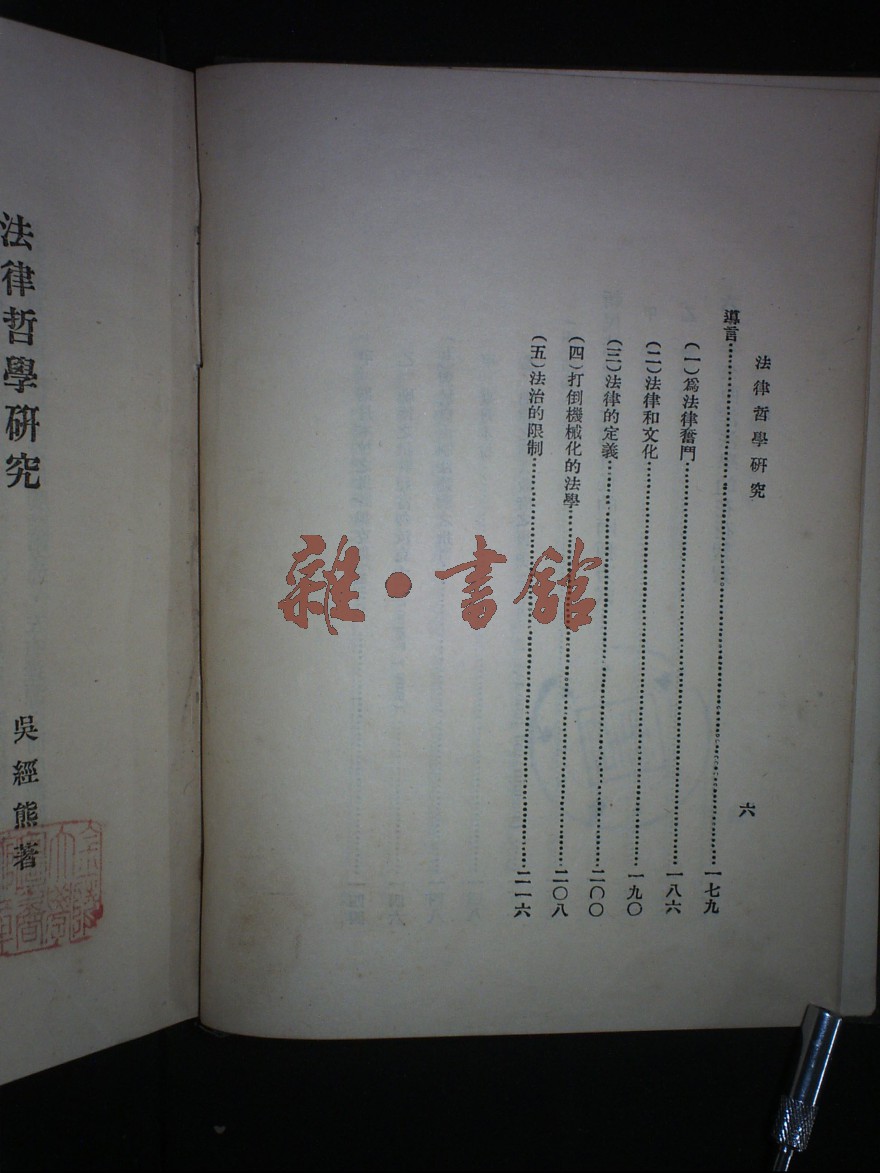 法律哲學研究
六
導言……一七九
(一)爲法律奮鬥……一八六
(二)法律和文化……一九〇
(三)法律的定義……二〇〇
(四)打倒機械化的法學……二〇八
(五)法治的限制……二一六
法律哲學研究
吳經熊著
雜·書館